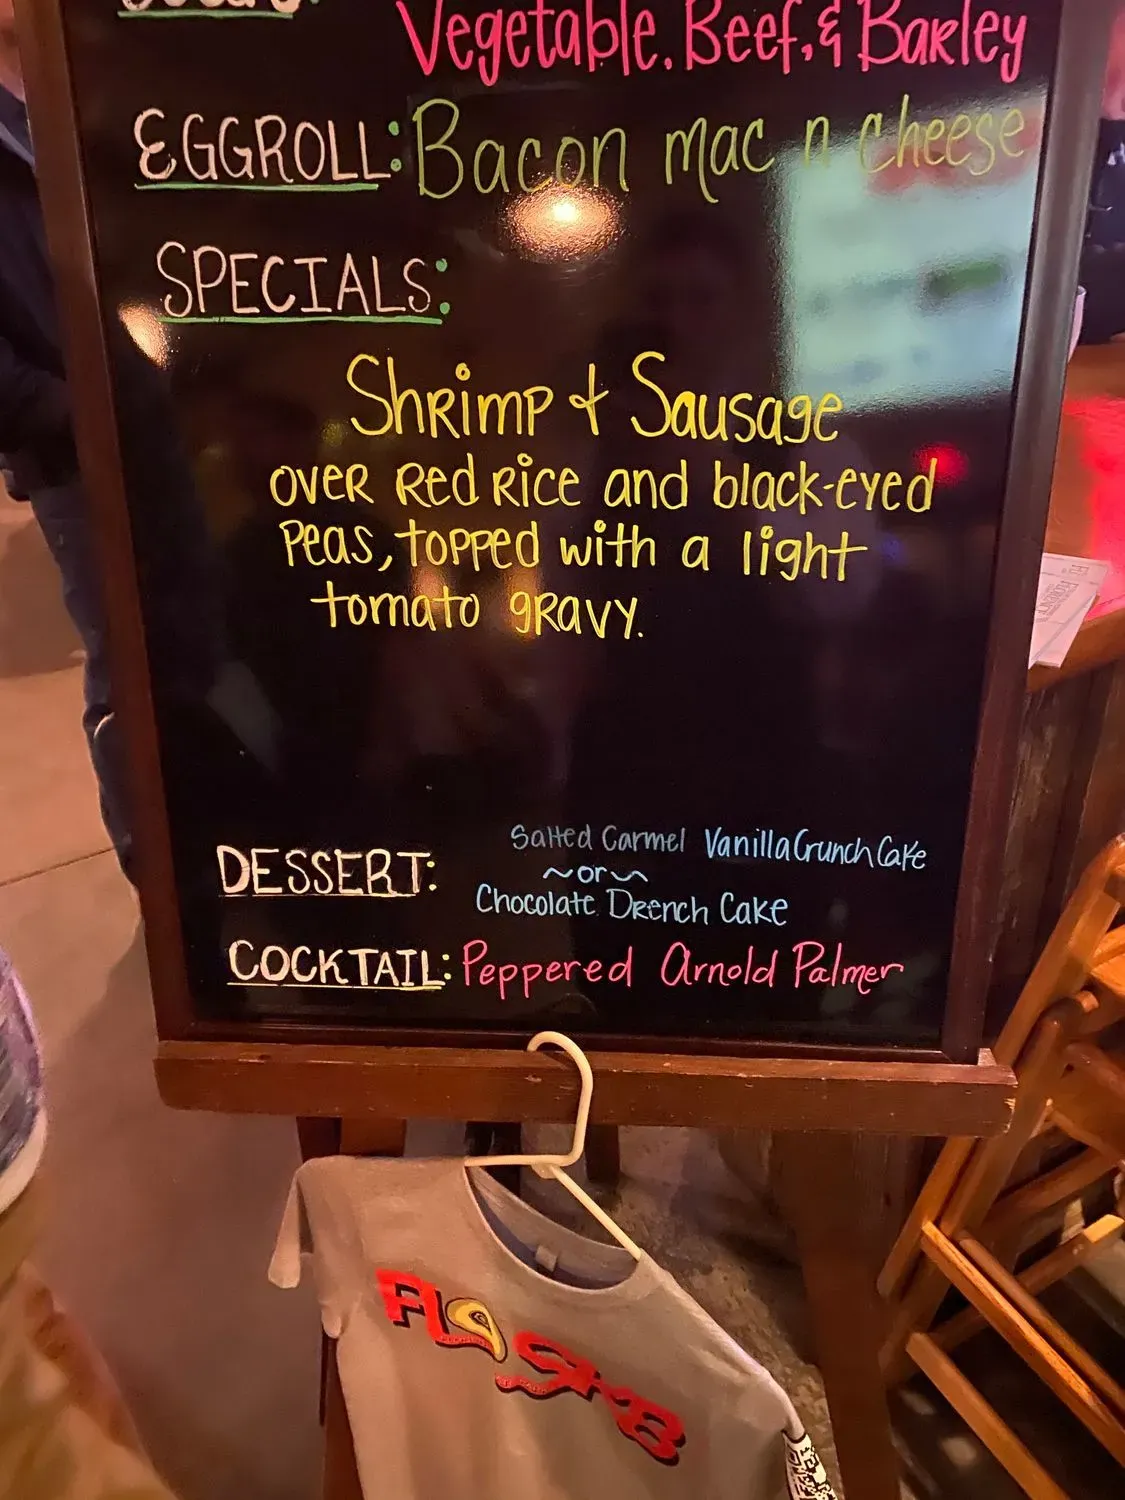 Vegetable, Beef, & Barley
EGGROLL: Bacon mac n cheese
SPECIALS:
Shrimp & Sausage
over Red Rice and black-eyed
Peas, topped with a light
tomato gravy.
DESSERT: Salted Carmel Vanilla Crunch Cake
~or~
Chocolate Drench Cake
COCKTAIL: Peppered Arnold Palmer